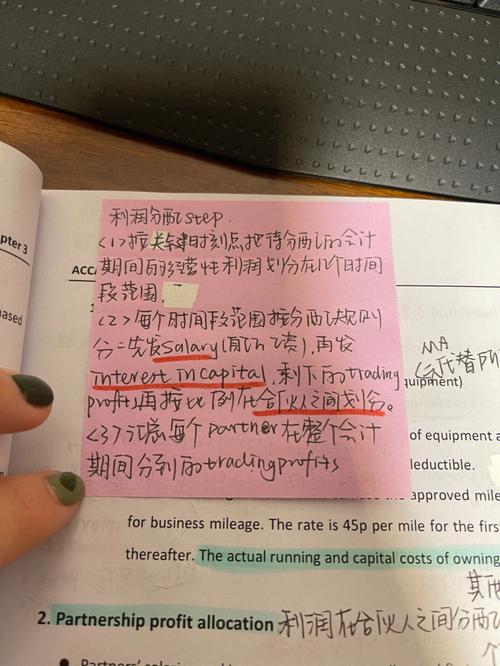 利润分配step.
<1>按关键时刻点把待分配的会计
期间的经营性利润划分在几个时间
段范围.
<2>每个时间段范围按分配规则
分：先发salary(有几发), 再发
interest in capital, 剩下的trading
profits再按比例在合伙人之间划分。
<3>汇总每个partner在整个会计
期间分到的trading profits
pter 3
ACCA
ased
MA
quipment)
of equipment a
leducible.
approved mile
for business mileage. The rate is 45p per mile for the first
thereafter. The actual running and capital costs of owning
其他
2. Partnership profit allocation 利润在合伙人之间分配